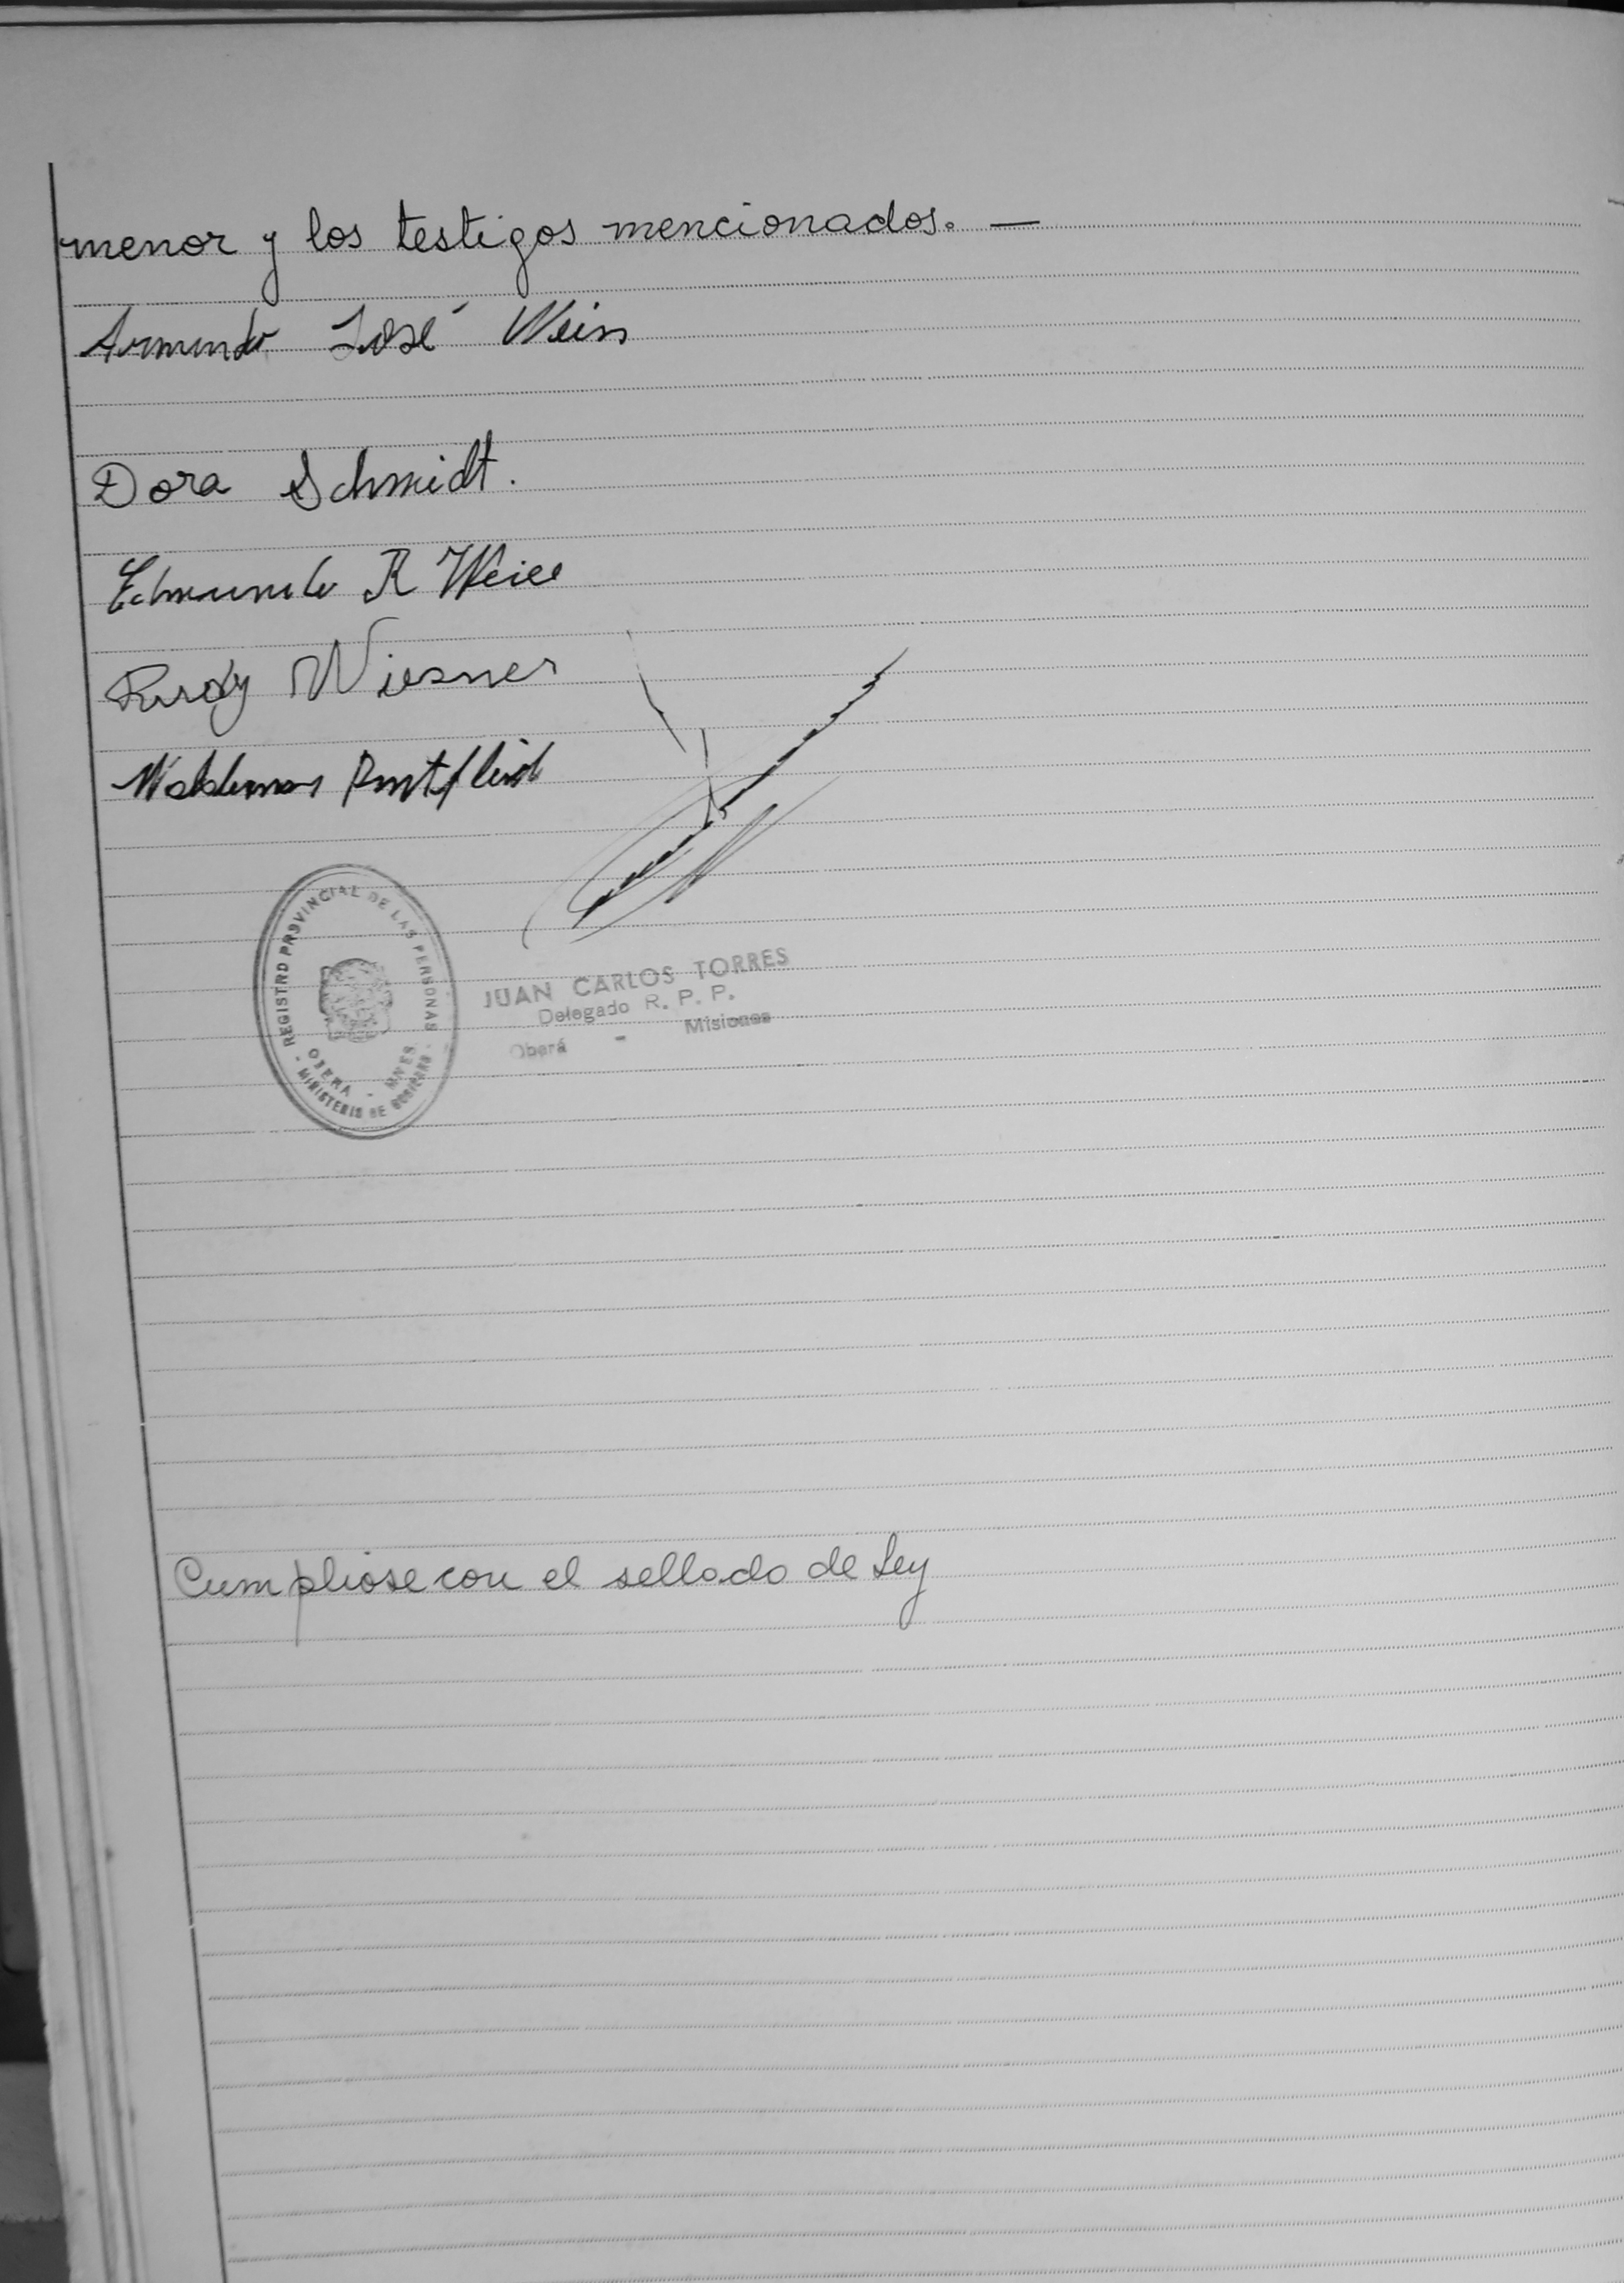 menor y los testigos mencionados. —
Armando José Weiss
Dora Schmidt.
Edmundo R Weiss
Rudy Wiesner
Waldemar
REGISTRO PROVINCIAL DE LAS PERSONAS
OBERA - MNES
- MINISTERIO DE GOBIERNO -
JUAN CARLOS TORRES
Delegado R. P. P.
Oberá - Misiones
Cumpliose con el sellado de Ley